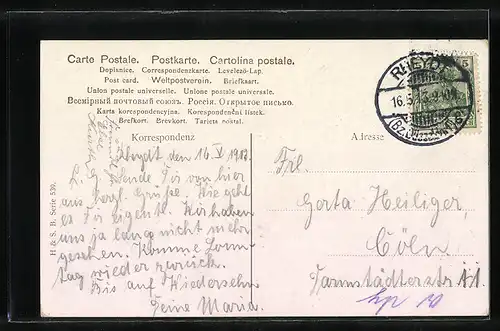 Carte Postale. Postkarte. Cartolina postale.
Dopisnice. Correspondenzkarte. Levelező-Lap.
Post card. Weltpostverein. Briefkaart.
Union postale universelle. Unione postale universale.
Всемірный почтовый союзъ. Россія. Открытое письмо.
Karta korespondencyjna. Korespondenční lístek.
Brefkort. Brevkort. Tarjeta postal.
Korrespondenz
Adresse.
RHEYDT
16.5
(BZ. DÜSSELDORF)
5
H & S. B. Serie 539.
Rheydt, den 16. V 1913.
Sende Dir von hier
aus herzl. Grüße. Wie geht
es Dir eigentl. Wir haben
uns ja lang nicht mehr
gesehen. Komme Sonn-
tag wieder zurück.
Bis auf Wiedersehn
Deine Maria.
Frl.
Gerta Heiliger,
Cöln
Darmstädterstr. 11.